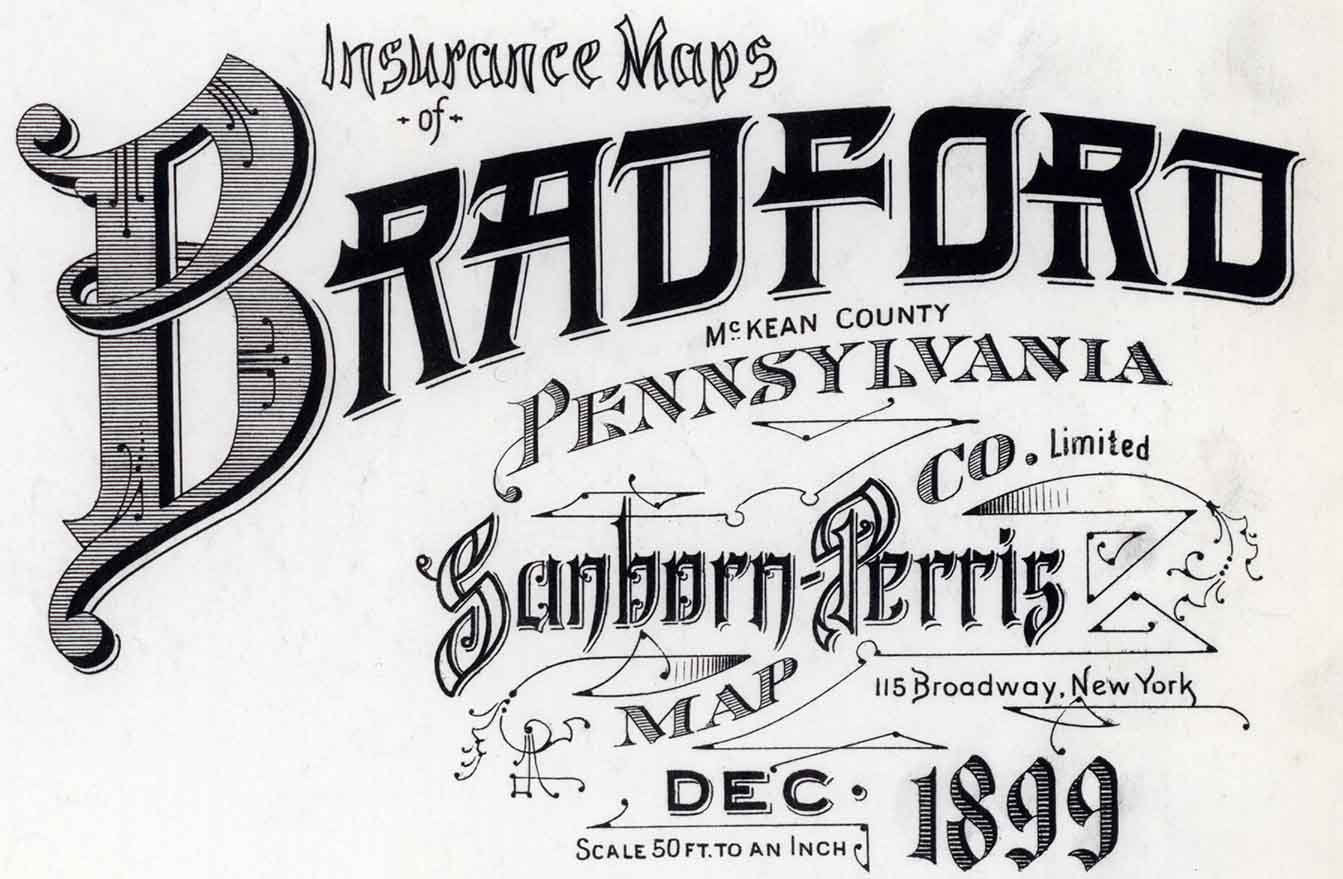 Insurance Maps
of
BRADFORD
McKEAN COUNTY
PENNSYLVANIA
Sanborn-Perris
MAP CO. Limited
115 Broadway, New York
DEC. 1899
SCALE 50 FT. TO AN INCH